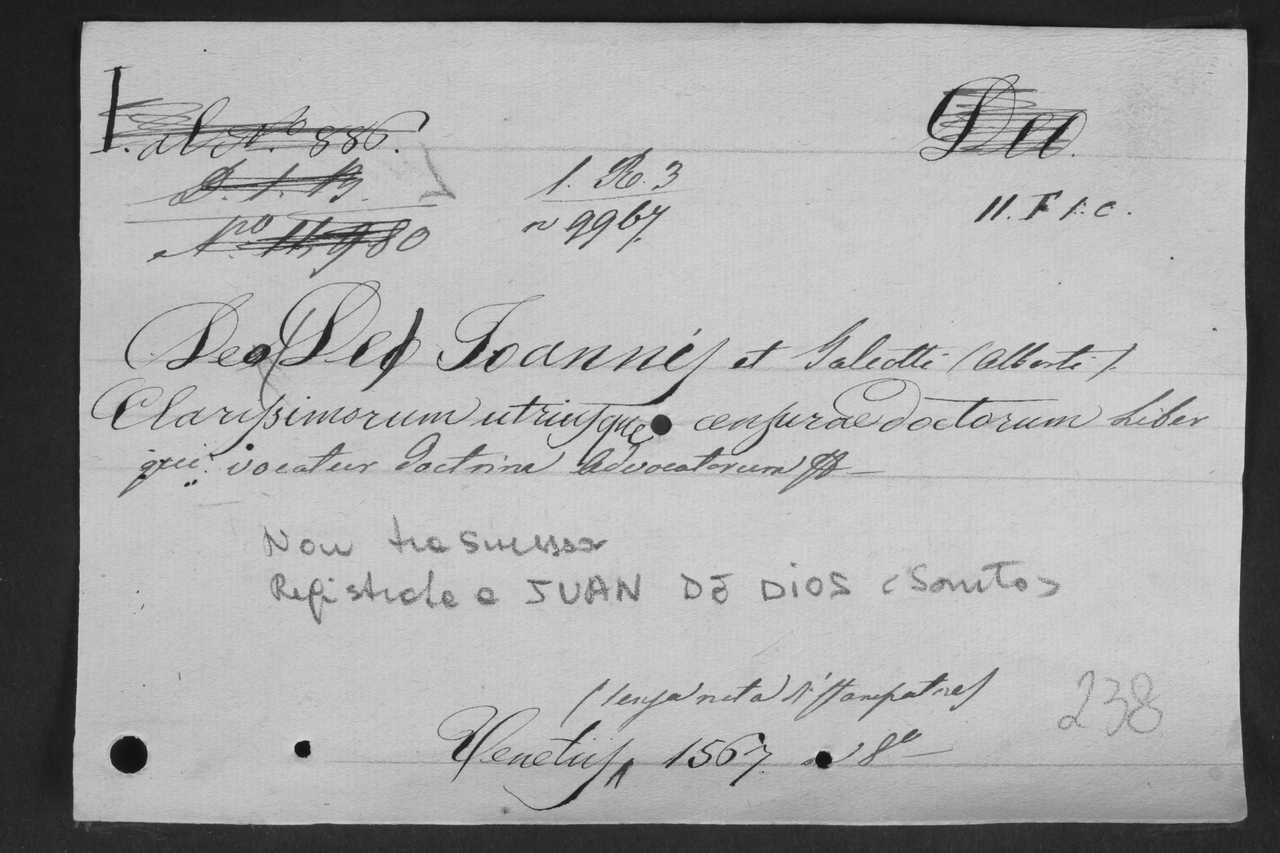 I. al N.o 886.
Deo.
D. 1. B.
1. R. 3
No 11,980
n 9967.
11. F 1. c.
Deo (De) Joannis et Galeotti (Alberti).
Clarissimorum utriusque censurae doctorum Liber
qui vocatur doctrina Advocatorum
Non trasmessa
Registrata a JUAN DE DIOS (Santo)
(senza nota di stampatore)
Venetiis, 1567. 8o
238